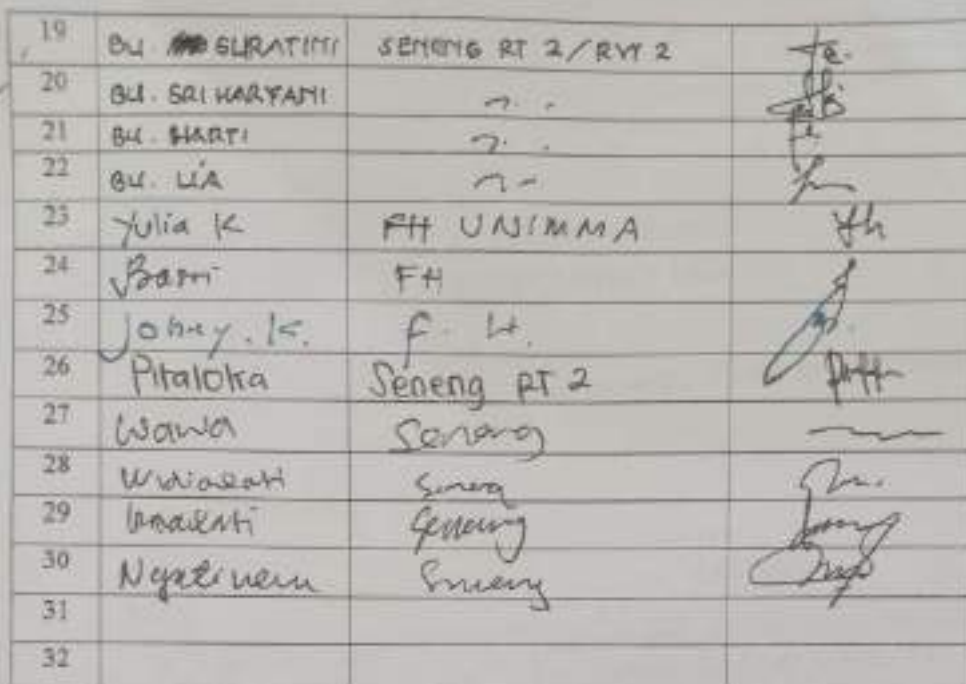 19 BU. SURATINI SENENG RT 2/RW 2
20 BU. SRI HARYANI
21 BU. HARTI
22 BU. LIA
23 Yulia K FH UNIMMA
24 Basri FH
25 Johny. K. F. H.
26 Pitaloka Seneng RT 2
27 Wawa Seneng
28 Widiawati Seneng
29 Seneng
30 Ngatinem Seneng
31
32